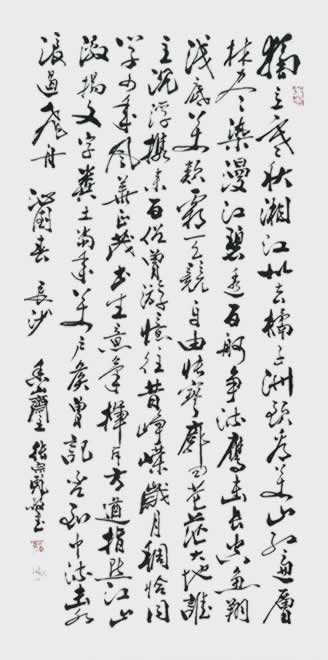 獨立寒秋湘江北去橘子洲頭看萬山紅遍層
林尽染漫江碧透百舸爭流鷹擊長空魚翔
淺底萬類霜天競自由悵寥廓問蒼茫大地誰
主沉浮攜來百侣曾游憶往昔崢嶸歲月稠恰同
學少年風華正茂書生意氣揮斥方遒指點江山
激揚文字糞土當年萬户侯曾記否到中流擊水
浪遏飛舟 沁園春 長沙